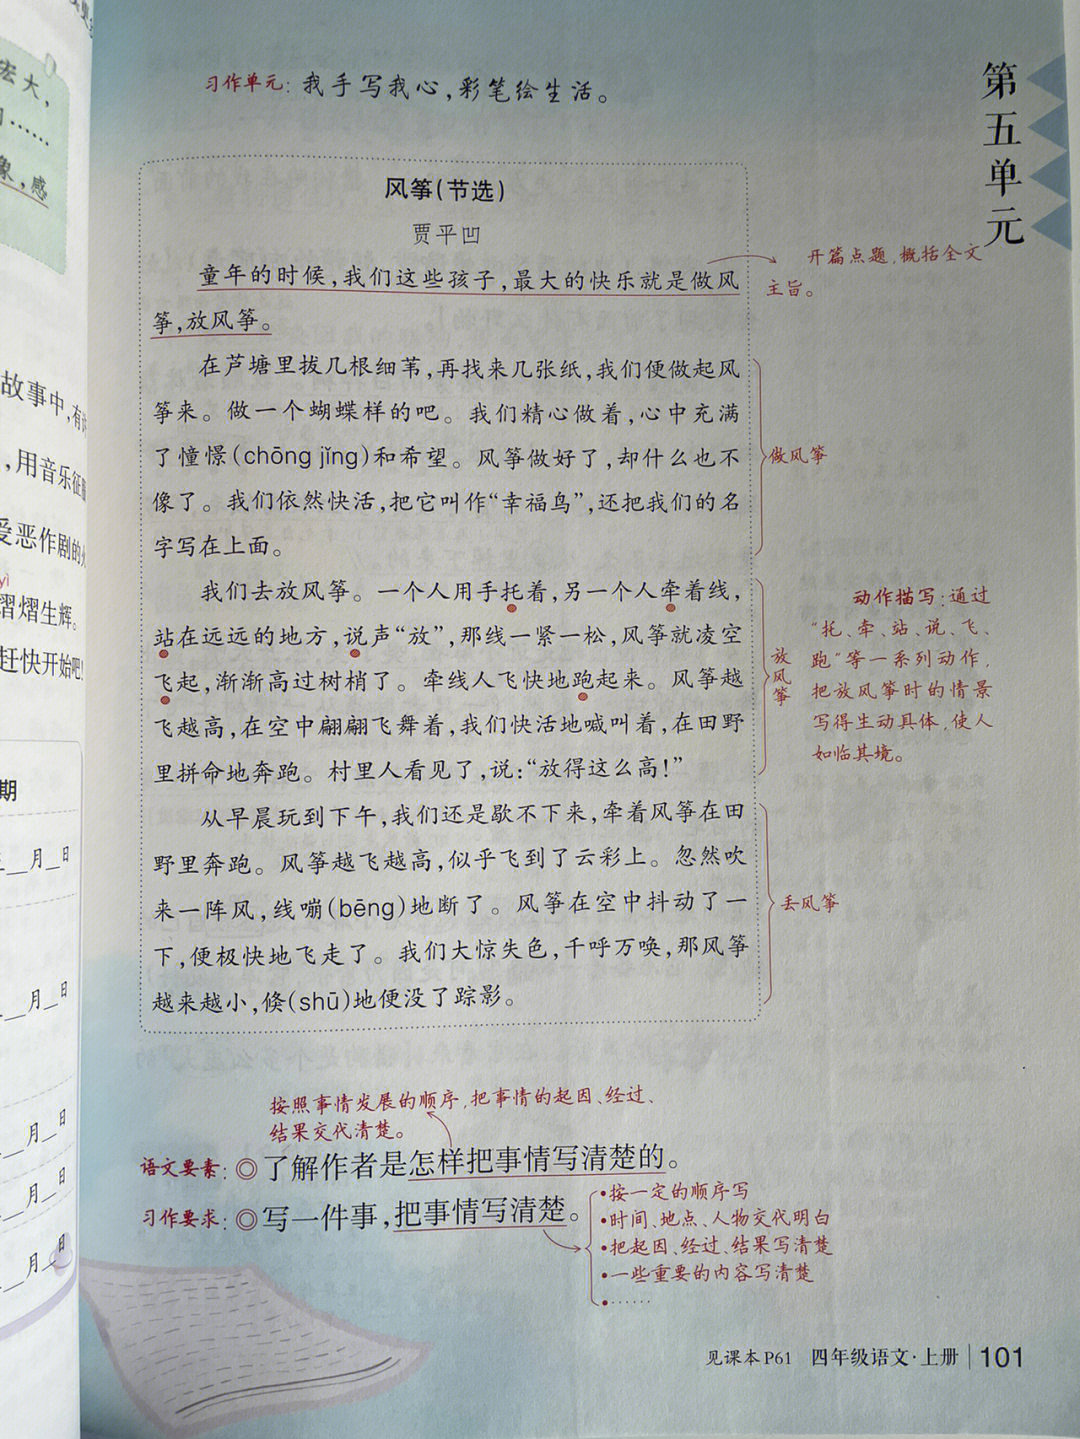 宏大，
……
象，感
故事中，有
，用音乐征
爱恶作剧的
yì
熠熠生辉。
赶快开始吧！
期
月 日
月 日
月 日
月 日
月 日
习作单元：我手写我心，彩笔绘生活。
第五单元
风筝（节选）
贾平凹
童年的时候，我们这些孩子，最大的快乐就是做风
筝，放风筝。
开篇点题，概括全文
主旨。
在芦塘里拔几根细苇，再找来几张纸，我们便做起风
筝来。做一个蝴蝶样的吧。我们精心做着，心中充满
了憧憬（chōng jǐng）和希望。风筝做好了，却什么也不
像了。我们依然快活，把它叫作“幸福鸟”，还把我们的名
字写在上面。
做风筝
我们去放风筝。一个人用手托着，另一个人牵着线，
站在远远的地方，说声“放”，那线一紧一松，风筝就凌空
飞起，渐渐高过树梢了。牵线人飞快地跑起来。风筝越
飞越高，在空中翩翩飞舞着，我们快活地喊叫着，在田野
里拼命地奔跑。村里人看见了，说：“放得这么高！”
放风筝
动作描写：通过
“托、牵、站、说、飞、
跑”等一系列动作，
把放风筝时的情景
写得生动具体，使人
如临其境。
从早晨玩到下午，我们还是歇不下来，牵着风筝在田
野里奔跑。风筝越飞越高，似乎飞到了云彩上。忽然吹
来一阵风，线嘣（bēng）地断了。风筝在空中抖动了一
下，便极快地飞走了。我们大惊失色，千呼万唤，那风筝
越来越小，倏（shū）地便没了踪影。
丢风筝
按照事情发展的顺序，把事情的起因、经过、
结果交代清楚。
语文要素：◎了解作者是怎样把事情写清楚的。
习作要求：◎写一件事，把事情写清楚。
•按一定的顺序写
•时间、地点、人物交代明白
•把起因、经过、结果写清楚
•一些重要的内容写清楚
•……
见课本P61 四年级语文·上册 101